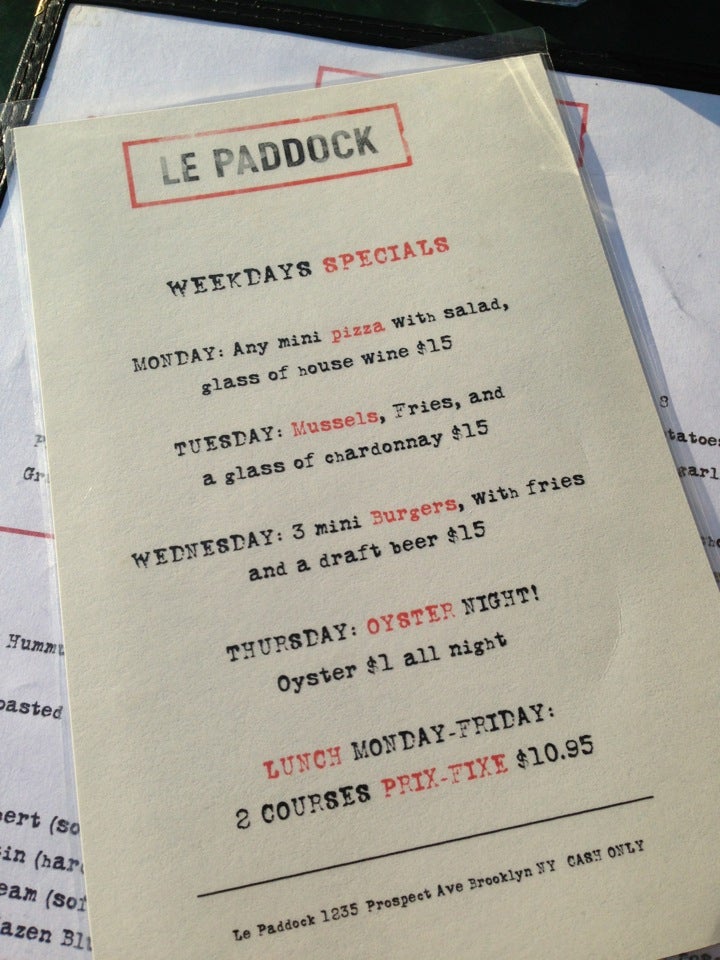 LE PADDOCK
WEEKDAYS SPECIALS
MONDAY: Any mini pizza with salad,
glass of house wine $15
TUESDAY: Mussels, Fries, and
a glass of chardonnay $15
WEDNESDAY: 3 mini Burgers, with fries
and a draft beer $15
THURSDAY: OYSTER NIGHT!
Oyster $1 all night
LUNCH MONDAY-FRIDAY:
2 COURSES PRIX-FIXE $10.95
Le Paddock 1235 Prospect Ave Brooklyn NY CASH ONLY